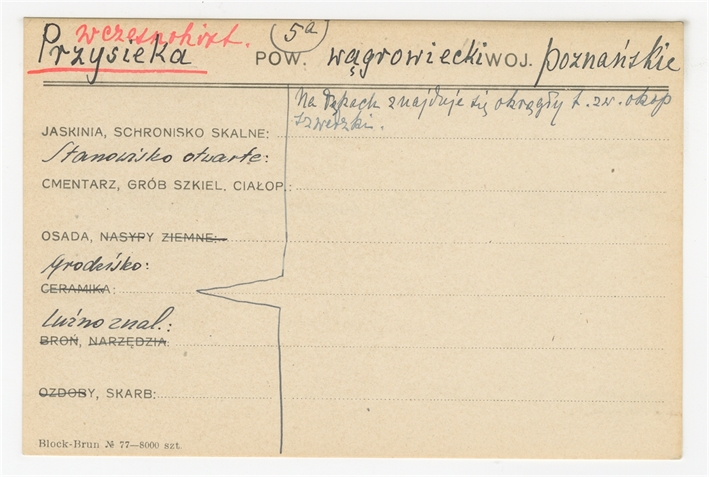 wczesnohist.
5a
Przysieka POW. wągrowiecki WOJ. poznańskie
Na łąkach znajduje się okrągły t. zw. okop
szwedzki.
JASKINIA, SCHRONISKO SKALNE:
Stanowisko otwarte:
CMENTARZ, GRÓB SZKIEL. CIAŁOP.:
OSADA, NASYPY ZIEMNE:
Grodzisko:
CERAMIKA:
Luźno znal.:
BROŃ, NARZĘDZIA:
OZDOBY, SKARB:
Block-Brun № 77—8000 szt.